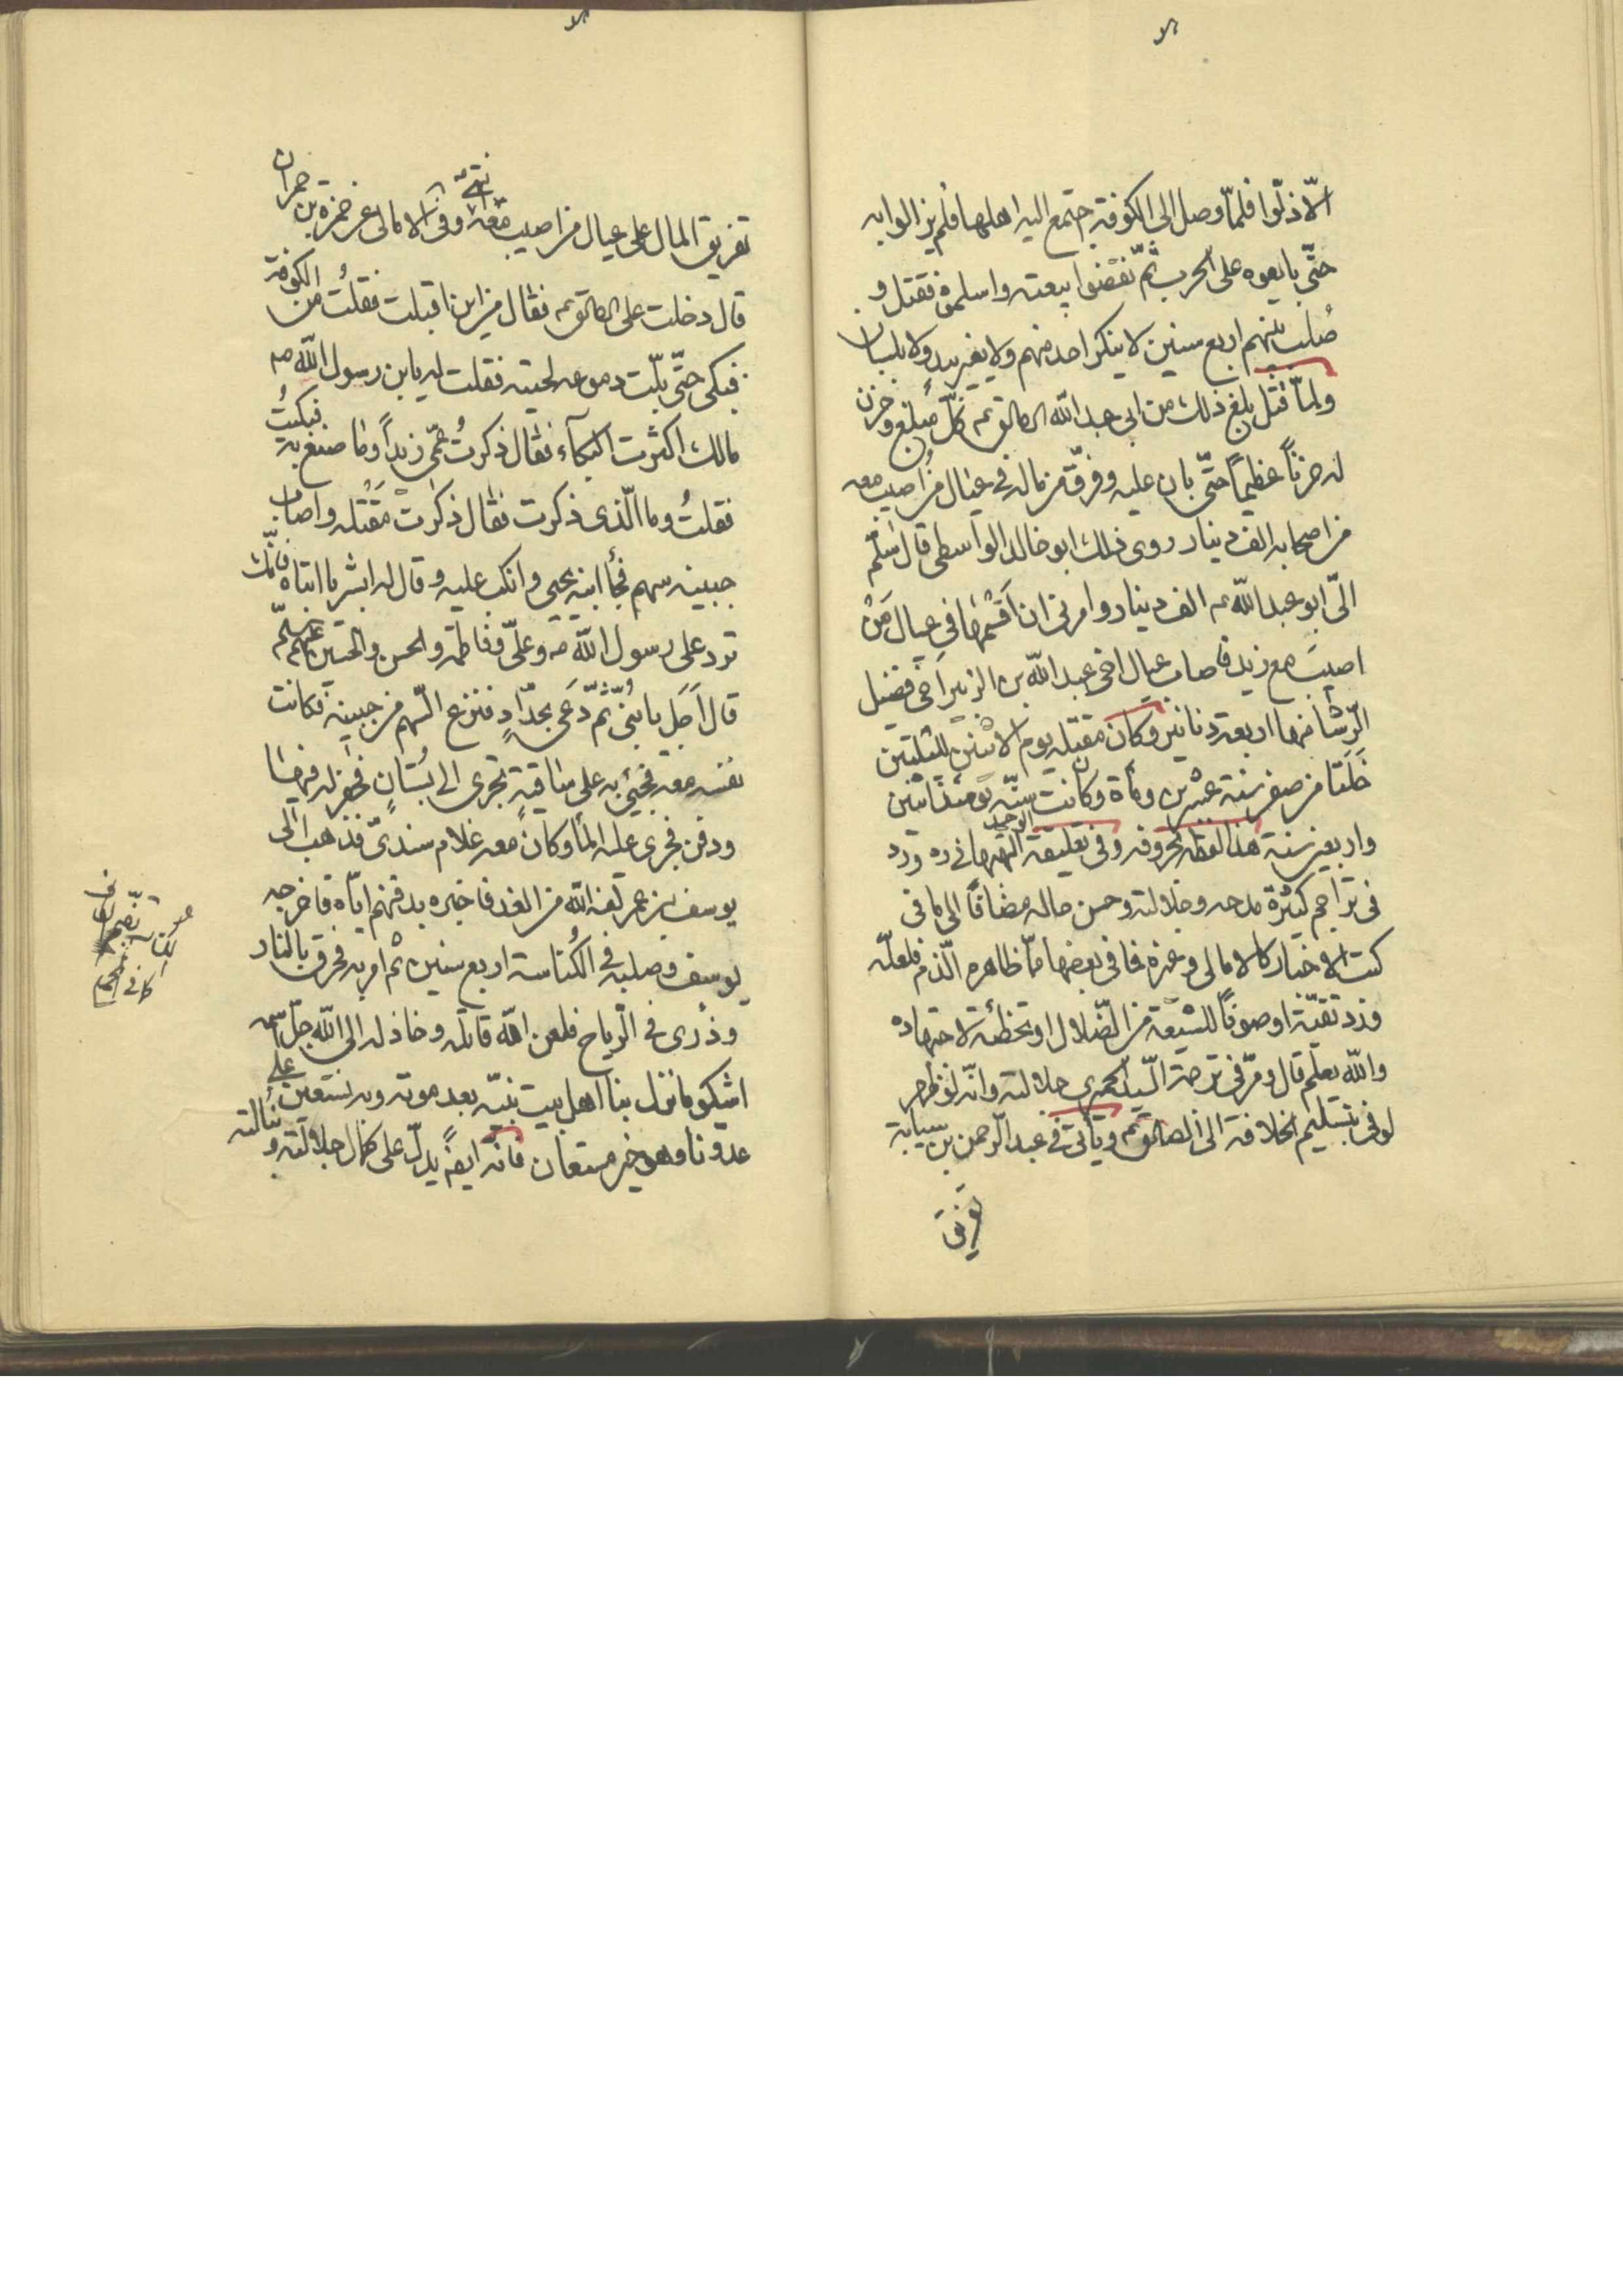 الّا ذلّوا فلمّا وصل الى الكوفة اجتمع اليه اهلها فلم يزالوا به
حتّى بايعوه على الحرب ثمّ نقضوا بيعته واسلموه فقتل و
صُلب بينهم اربع سنين لا ينكر احد منهم ولا بغير يد ولا بلسان
ولمّا قُتل بلغ ذلك من ابى عبد الله الصادق ع كلّ مبلغ وحزن
له حزناً عظيماً حتّى بان عليه وفرّق من ماله فى عيال من اصيب معه
من اصحابه الف دينار روى ذلك ابو خالد الواسطى قال سلّم
الىّ ابو عبد الله ع الف دينار وامرنى ان اقسمها فى عيال مَنْ
اصيبَ مع زيد فاصاب عيال اخى عبد الله بن الزبير اخى فضيل
الرّسّان منها اربعة دنانير وكان مقتله يوم الاثنين لليلتين
خَلَتا من صفر سنة عشرين ومأة وكانت سنّه يومئذ اثنين
واربعين سنة هذا لفظه بحروفه وفى تعليقة الوحيد البهبهانى ره ورد
فى تراجم كثيرة مدحه وجلالته وحسن حاله مضافاً الى ما فى
كتب الاخبار كالامالى وغيره فما فى بعضها ممّا ظاهره الذّم فلعلّه
ورد تقيّة او صوناً للشيعة من الضّلال او تخطئة لاجتهاده
والله يعلم قال ومرّ فى ترجمة السّيّد الحميرى جلالته وانّه لو ظهر
لوفى بتسليم الخلافة الى الصادق ع ويأتى فى عبد الرّحمن بن سيابة
تفريق
تفريق المال على عيال من اصيب معه انتهى وفى الامالى عن حمزة بن حمران
قال دخلت على الصادق ع فقال من اين اقبلت فقلتُ من الكوفة
فبكى حتّى بلّت دموعه لحيته فقلت له يا بن رسول الله ص
مالك اكثرت البكاء فقال ذكرتُ عمّى زيداً وما صنع به فبكيتُ
فقلتُ وما الّذى ذكرت فقال ذكرت مَقْتله واصاب
جبينه سهم فجاء ابنه يحيى وانكب عليه وقال له ابشر يا ابتاه فانّك
ترد على رسول الله ص وعلىّ وفاطمة والحسن والحسين
قال اَجَل يا بُنىّ ثمّ دَعى بحدّادٍ فنزع السّهم من جبينه فكانت
نفسه معه فجىء به على ساقية تجرى الى بُستانٍ فحفر له فيها
ودفن فجرى عليه الماء وكان معه غلام سندىّ فذهب الى
يوسف بن عمر لعنه الله من الغد فاخبره بدفنهم ايّاه فاخرجه
يوسف وصلبه فى الكُناسة اربع سنين ثم امر به فحرق بالنار
وذُرى فى الرّياح فلعن الله قاتله وخاذله الى الله جلّ اسمه
اشكو ما نزل بنا اهل بيت نبيّه بعد موته وبه نستعين على
عدونا وهو خير مستعان فانّه ايضاً يدلّ على كمال جلالته و